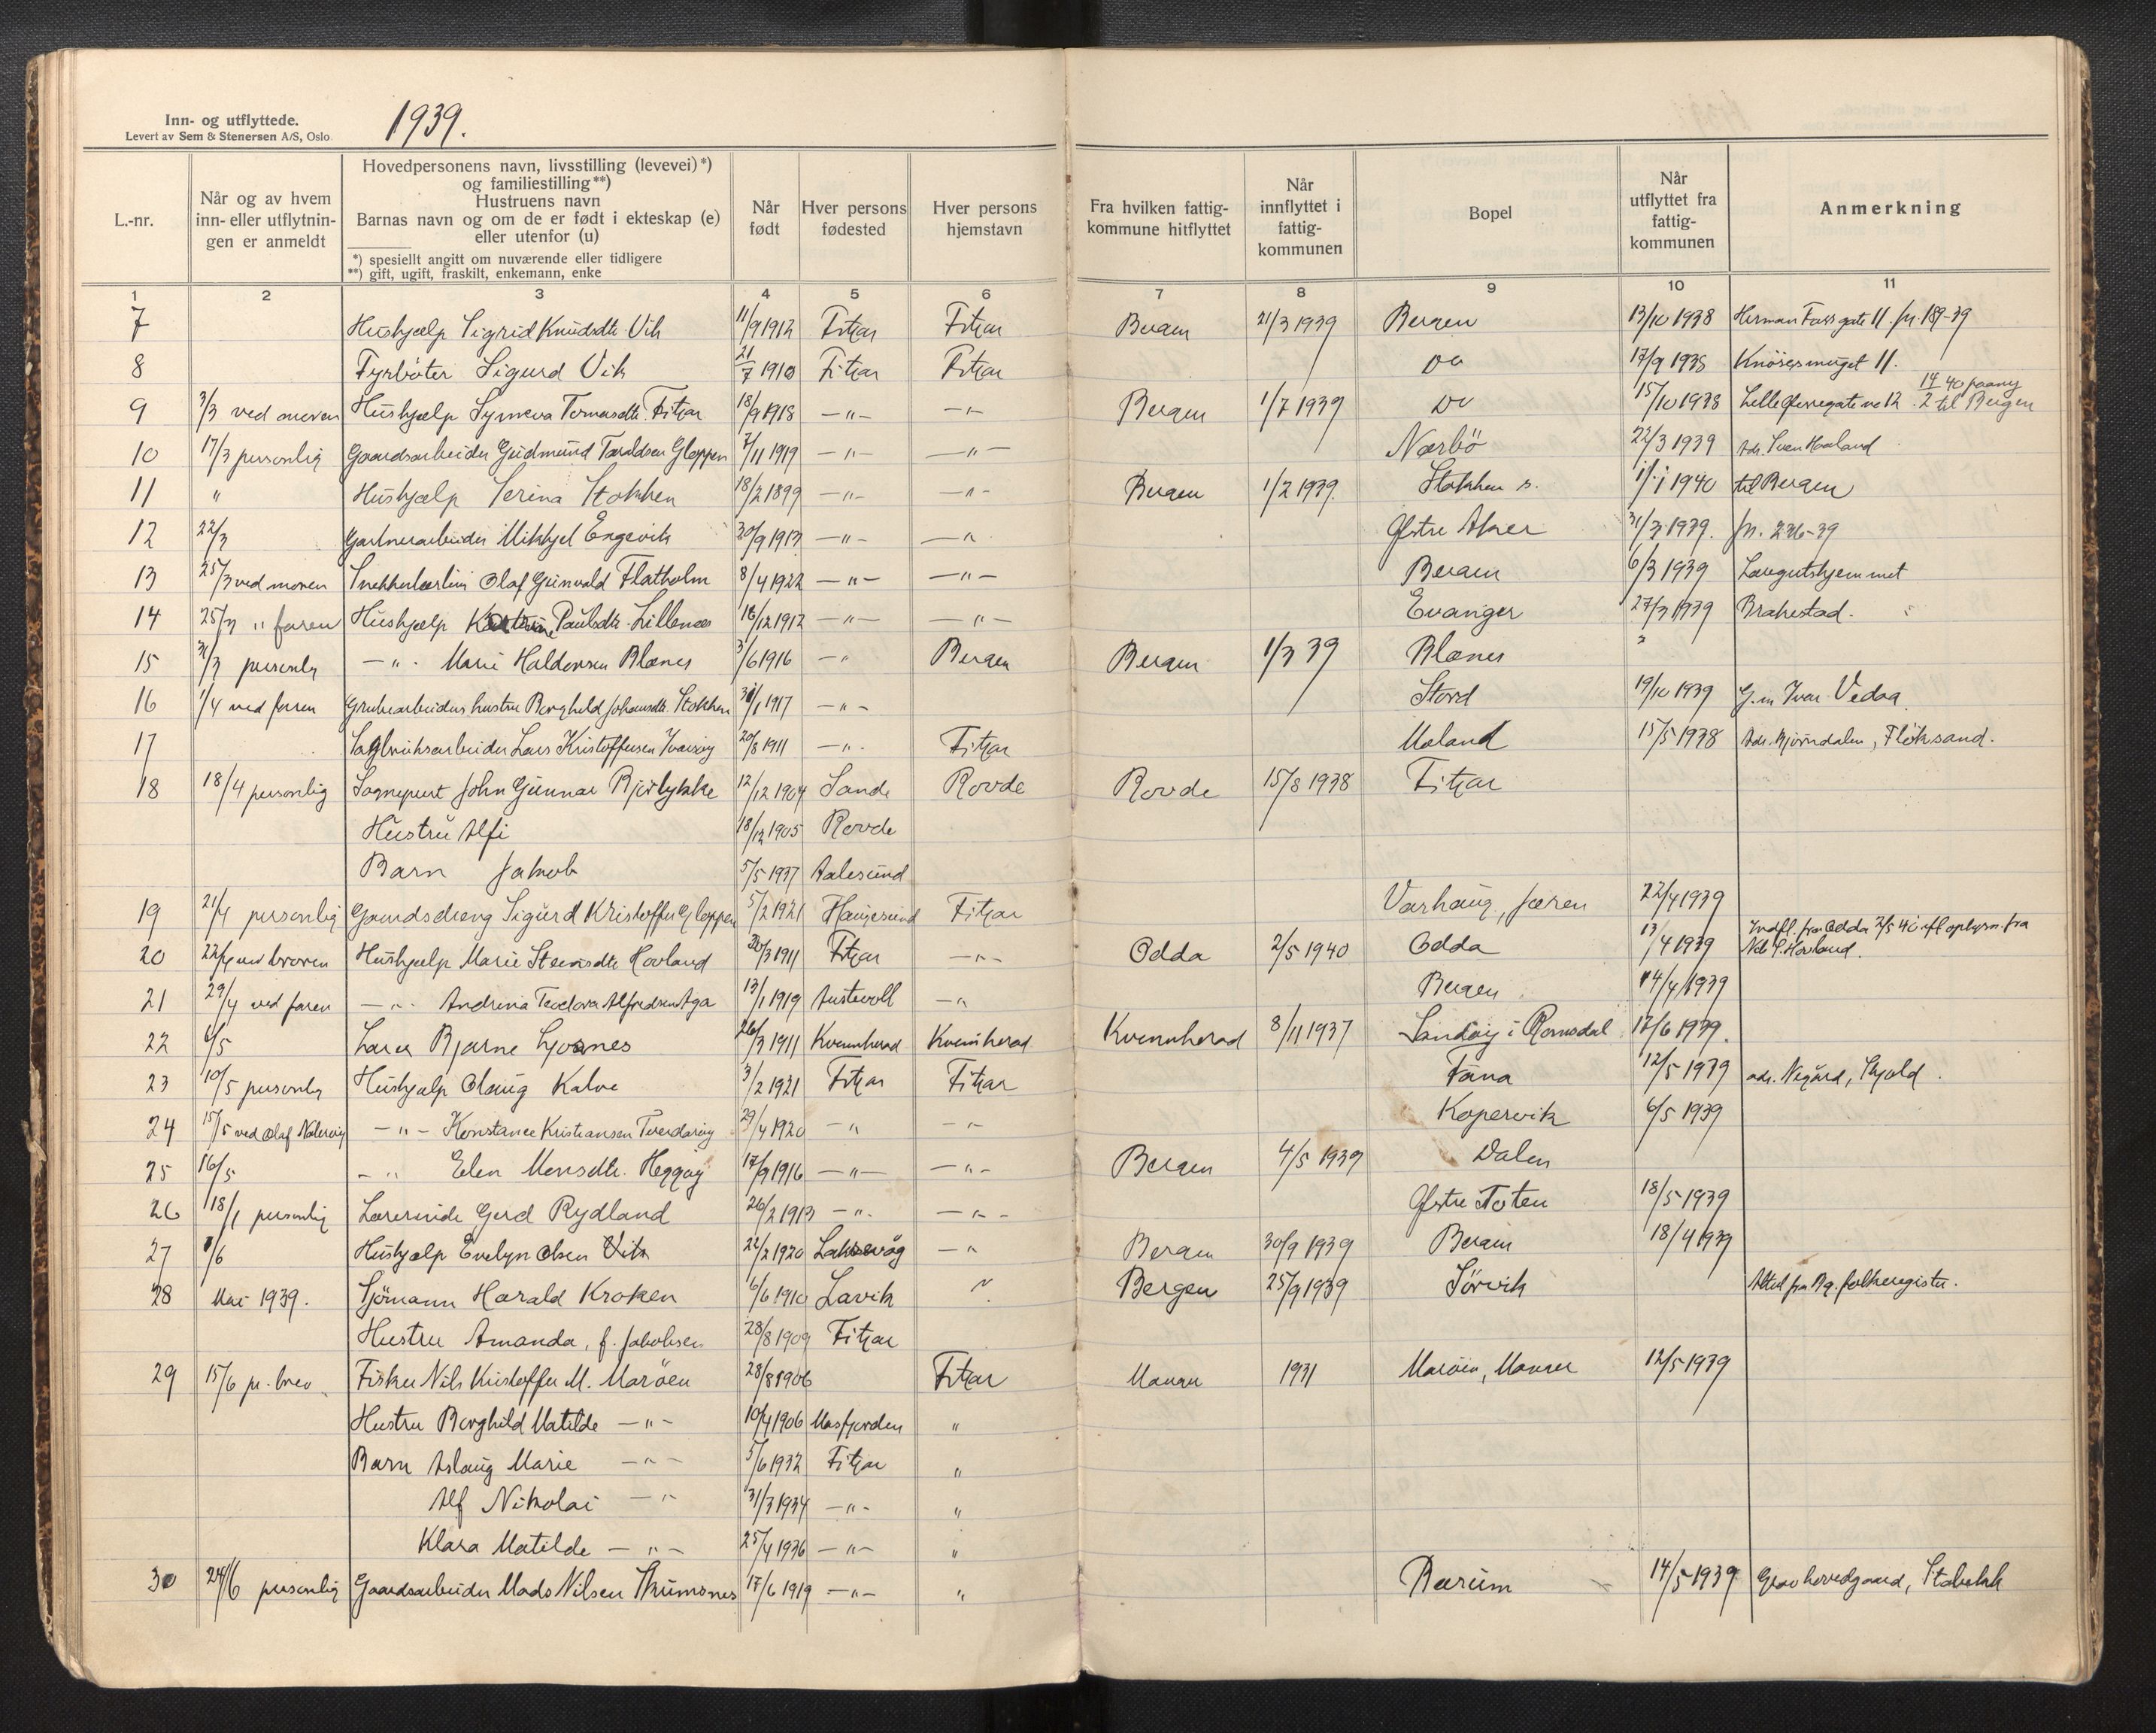 Inn- og utflyttede.
Levert av Sem & Stenersen A/S, Oslo.
1939.
L.-nr.
Når og av hvem
inn- eller utflytnin-
gen er anmeldt
Hovedpersonens navn, livsstilling (levevei)*)
og familiestilling**)
Hustruens navn
Barnas navn og om de er født i ekteskap (e)
eller utenfor (u)
*) spesiellt angitt om nuværende eller tidligere
**) gift, ugift, fraskilt, enkemann, enke
Når
født
Hver persons
fødested
Hver persons
hjemstavn
Fra hvilken fattig-
kommune hitflyttet
Når
innflyttet i
fattig-
kommunen
Bopel
Når
utflyttet fra
fattig-
kommunen
Anmerkning
1 2 3 4 5 6 7 8 9 10 11
7 Hushjælp Sigrid Knudsdtr. Vik 11/9 1912 Fitjar Fitjar Bergen 21/3 1939 Bergen 13/10 1938 Herman Fossgate 11. jn. 189-39
8 Fyrbøter Sigurd Vik 21/7 1910 Fitjar Fitjar Do 17/9 1938 Knøsesmuget 11.
9 3/3 ved Hushjælp Synneva Tomasdtr. Fitjar 18/9 1918 -"- -"- Bergen 1/7 1939 Do 15/10 1938 Lille no 12. 14/2 40 paany til Bergen
10 17/3 personlig Gaardsarbeider Gudmund Taraldsen Gloppen 7/11 1919 -"- -"- Nærbö 22/3 1939 Adr. Sven Haaland
11 " Hushjælp Serina Stokken 18/2 1899 -"- -"- Bergen 1/2 1939. Stokken n. 1/1 1940 til Bergen
12 22/3 Gartnerarbeider Mikkjel Engevik 30/9 1913 -"- -"- Østre Aker 31/3 1939. jn. 236-39
13 25/3 ved moren Snekkerlærling Olaf Gunvald Flatholm 8/4 1922 -"- -"- Bergen 6/3 1939 Laugutshjemmet
14 25/3 " faren Hushjælp Katrine Paulsdtr. Lillenes 16/12 1912 -"- -"- Evanger 27/3 1939 Brakestad.
15 31/3 personlig -"- Marie Haldorsen Blænes 3/6 1916 -"- Bergen Bergen 1/3 39 Blænes
16 1/4 ved faren Grubearbeiders hustru Borghild Johansdtr. Stokken 31/1 1917 -"- Stord 19/10 1939 G.m. Ivar Vedøa
17 Lars Kristoffersen 20/8 1911 -"- Fitjar Meland 15/5 1938 Adr. Bjørndalen, Fløksand.
18 18/4 personlig Sogneprest John Gunnar Bjørlykke 12/12 1904 Sande Rovde Rovde 15/8 1938 Fitjar
Hustru Alfi 18/12 1905 Rovde
Barn Jakob 5/5 1937 Aalesund
19 21/4 personlig Gaardsdreng Sigurd Kristoffer Gloppen 5/2 1921 Haugesund Fitjar Varhaug, Jæren 22/4 1939
20 22/4 ved broren Hushjælp Marie Steensdtr. Hovland 30/3 1911 Fitjar -"- Odda 2/5 1940 Odda 13/4 1939 Indfl. fra Odda 2/5 40 ifl. oplysn. fra Nils S. Hovland.
21 29/4 ved faren -"- Andrina Teodora Alfredsen Aga 13/1 1919 Austevoll -"- Bergen 14/4 1939
22 6/5 Lærer Bjarne Ljosnes 26/3 1911 Kvinnherad Kvinnherad Kvinnherad 8/11 1937 Sandøy i Romsdal 12/6 1939.
23 10/5 personlig Hushjælp Olaug Kalve 3/2 1921 Fitjar Fitjar Fana 12/5 1939 adr. Negård, Skjold.
24 15/5 ved Olaf -"- Konstanse Kristiansen 29/4 1920 -"- -"- Kopervik 6/5 1939
25 16/5 -"- Elen Monsdtr. Heggøy 17/9 1916 -"- -"- Bergen 4/5 1939 Dalen
26 18/1 personlig Lærerinde Gerd Rydland 26/2 1913 -"- -"- Østre Toten 18/5 1939
27 1/6 Hushjælp Evelyn Olsen Vik 22/2 1920 Laksevåg -"- Bergen 30/9 1939 Bergen 18/4 1939
28 Mai 1939. Sjömann Harald Kroken 6/6 1910 Lavik " Bergen 25/9 1939 Sörvik Attest fra Bg. folkeregister.
Hustru Amanda, f. Jakobsen 28/8 1909 Fitjar
29 15/6 pr. brev Fisker Nils Kristoffer M. Maröen 28/8 1906 Fitjar Manger 1931 Maröen, Manger 12/5 1939
Hustru Borghild Matilde -"- 10/4 1906 Masfjorden "
Barn Aslaug Marie -"- 5/6 1932 Fitjar "
Alf Nikolai -"- 31/3 1934 -"- "
Klara Matilde -"- 25/4 1936 -"- "
30 24/6 personlig Gaardsarbeider Mads Nilsen Skumsnes 17/6 1919 -"- " Bærum 14/5 1939 Grav hovedgaard, Stabekk